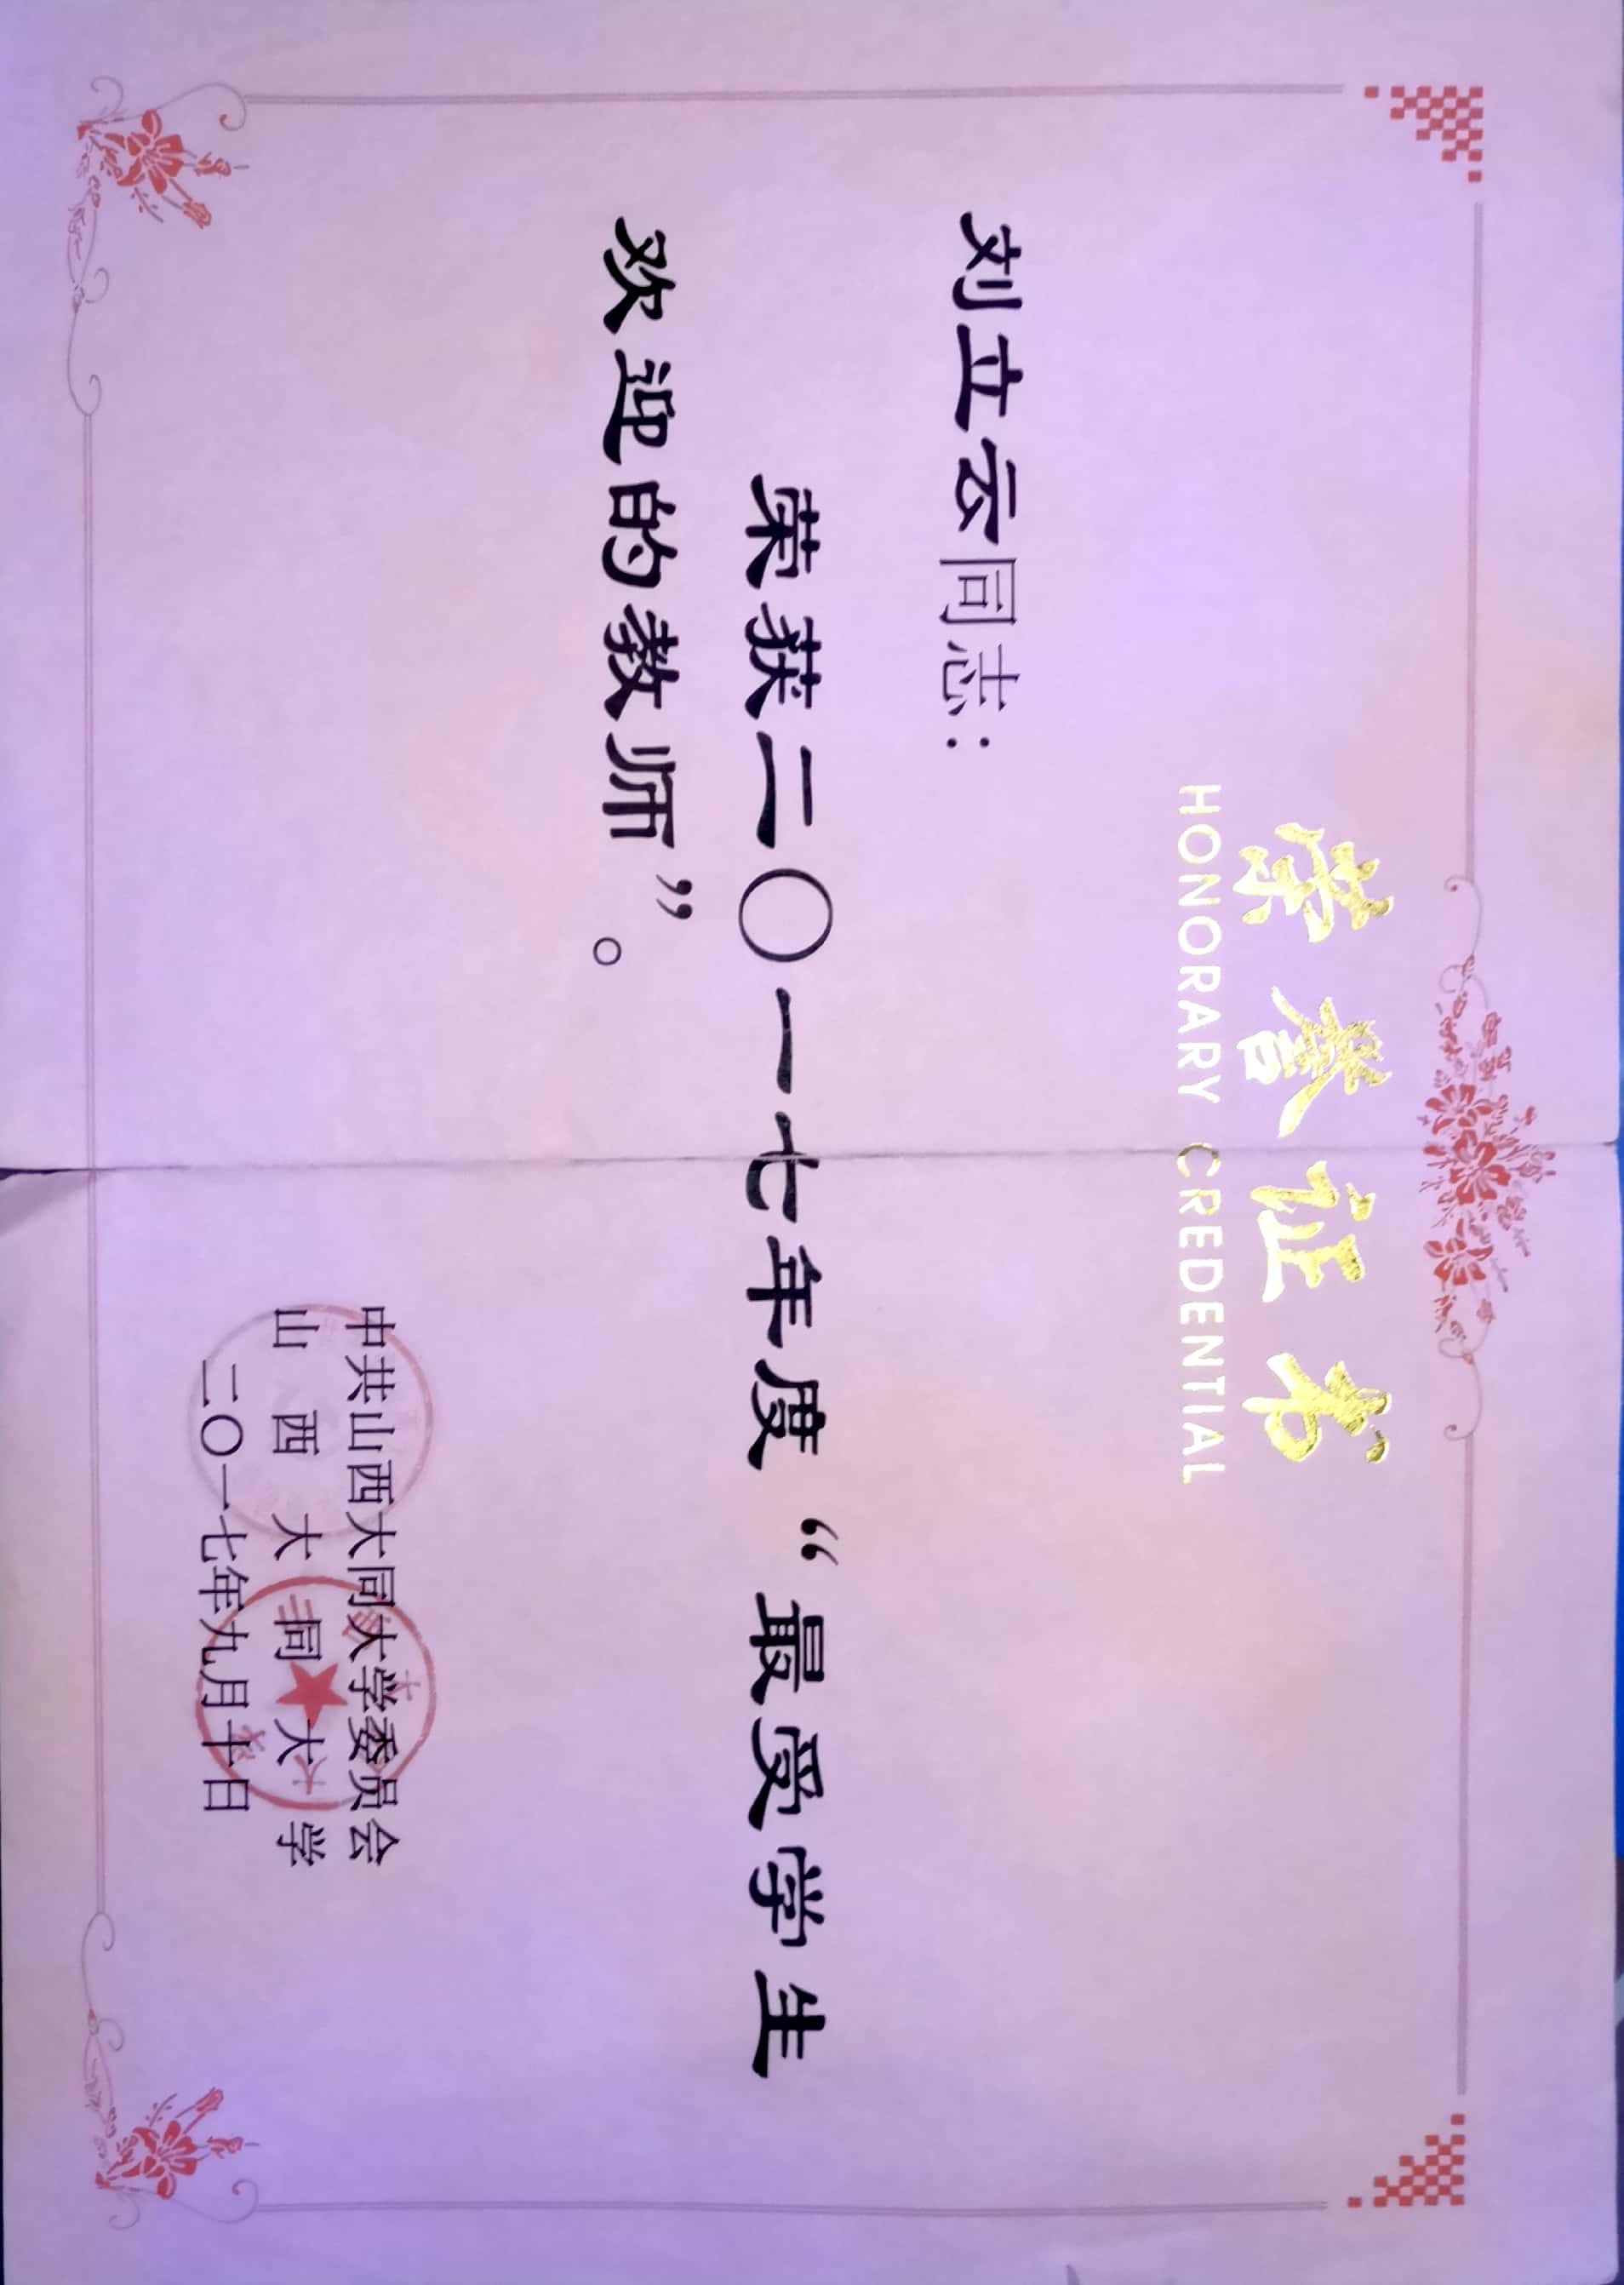 荣誉证书
HONORARY CREDENTIAL
刘立云同志：
荣获二〇一七年度“最受学生
欢迎的教师”。
中共山西大同大学委员会
山西大同大学
二〇一七年九月十日